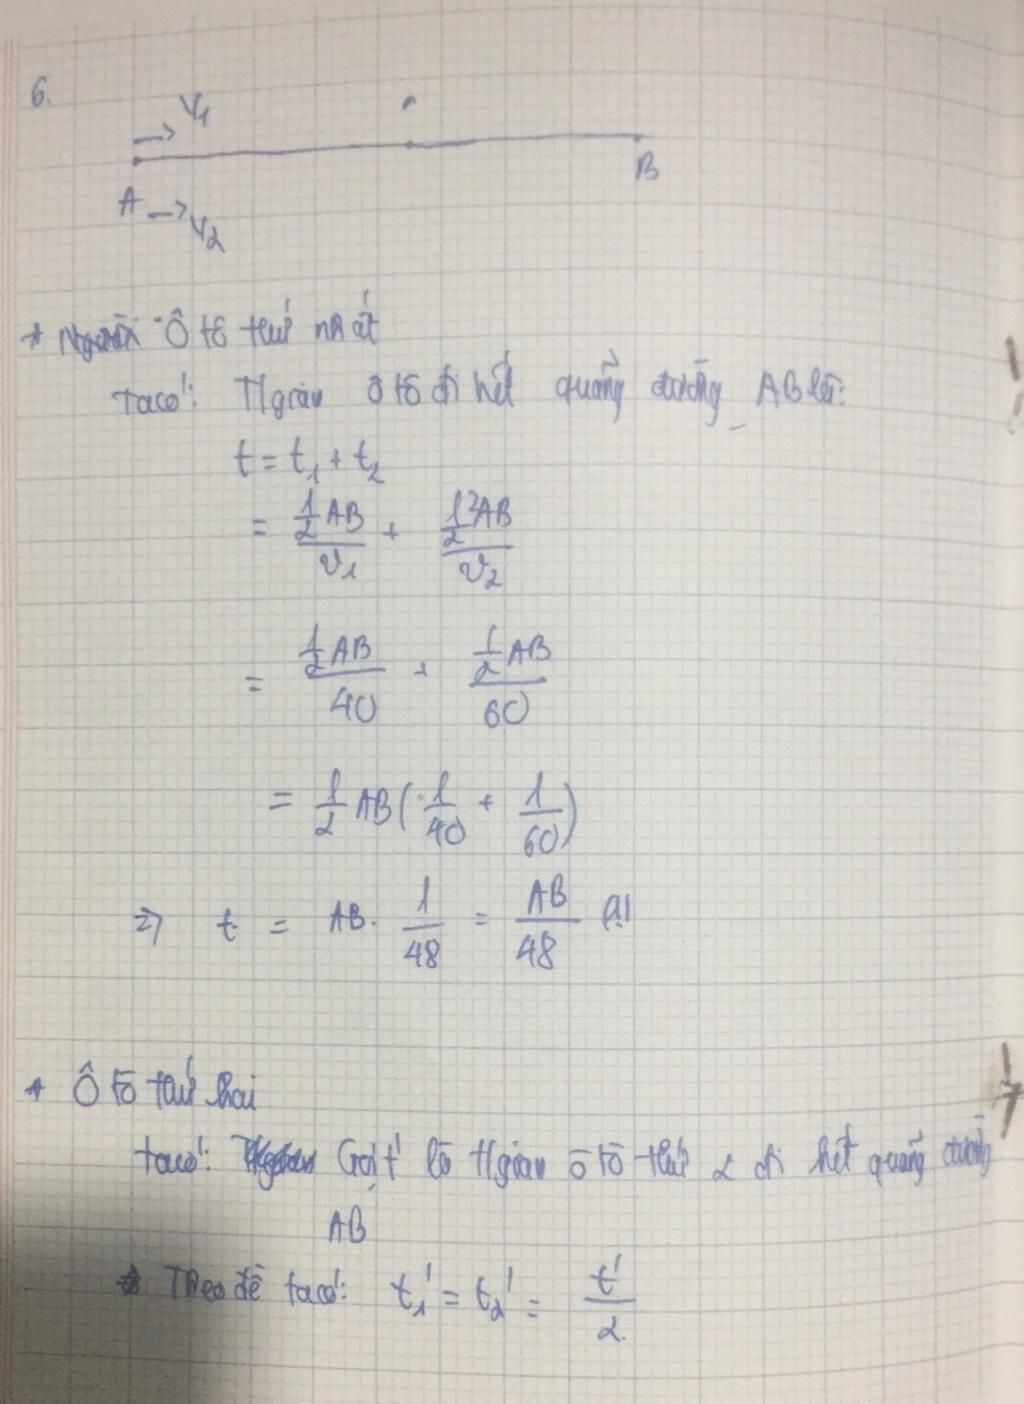 6.
V₁
A
B
V₂
* Ô tô thứ nhất
Ta có: Tgian ô tô đi hết quãng đường AB là:
t = t₁ + t₂
= ½AB/v₁ + ½AB/v₂
= ½AB/40 + ½AB/60
= 1/2 AB(1/40 + 1/60)
=> t = AB. 1/48 = AB/48 (1)
* Ô tô thứ hai
ta có: Gọi t' là tgian ô tô thứ 2 đi hết quãng đường
AB
Theo đề ta có: t₁' = t₂' = t'/2